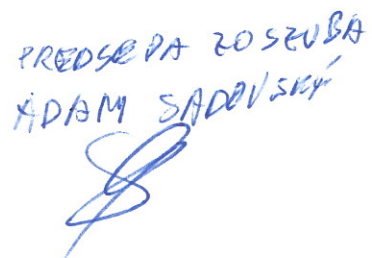 PREDSEDA ZO SZUBA
ADAM SADOVSKÝ